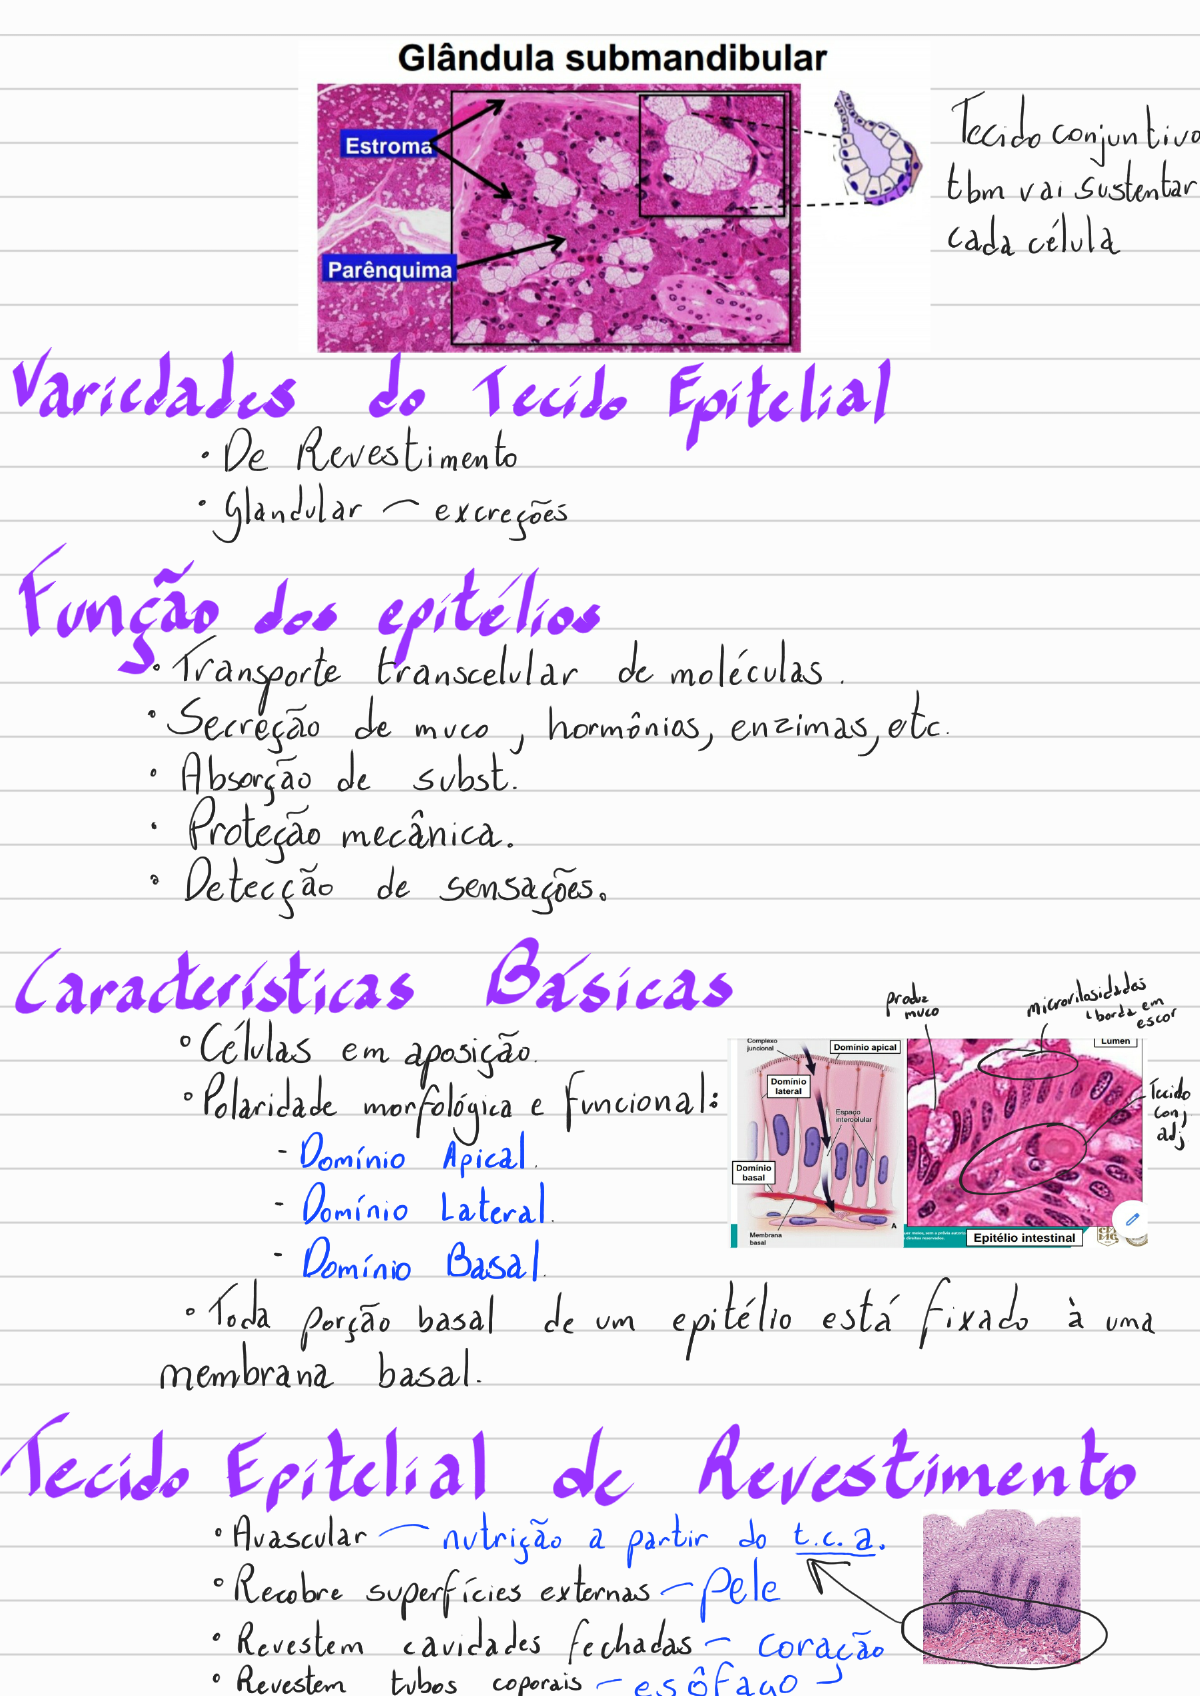 Glândula submandibular
Estroma
Parênquima
Tecido conjuntivo
tbm vai sustentar
cada célula
Variedades do Tecido Epitelial
• De Revestimento
• Glandular — excreções
Função dos epitélios
• Transporte transcelular de moléculas.
• Secreção de muco, hormônios, enzimas, etc.
• Absorção de subst.
• Proteção mecânica.
• Detecção de sensações.
Características Básicas
• Células em aposição.
• Polaridade morfológica e funcional:
- Domínio Apical.
- Domínio Lateral.
- Domínio Basal.
produz
muco
microvilosidades
borda em
escor
Complexo
juncional
Domínio apical
Domínio
lateral
Espaço
intercelular
Domínio
basal
Membrana
basal
A
Lúmen
Tecido
conj
adj
Epitélio intestinal
• Toda porção basal de um epitélio está fixado à uma
membrana basal.
Tecido Epitelial de Revestimento
• Avascular — nutrição a partir do t.c.a.
• Recobre superfícies externas — pele
• Revestem cavidades fechadas — coração
• Revestem tubos coporais — esôfago